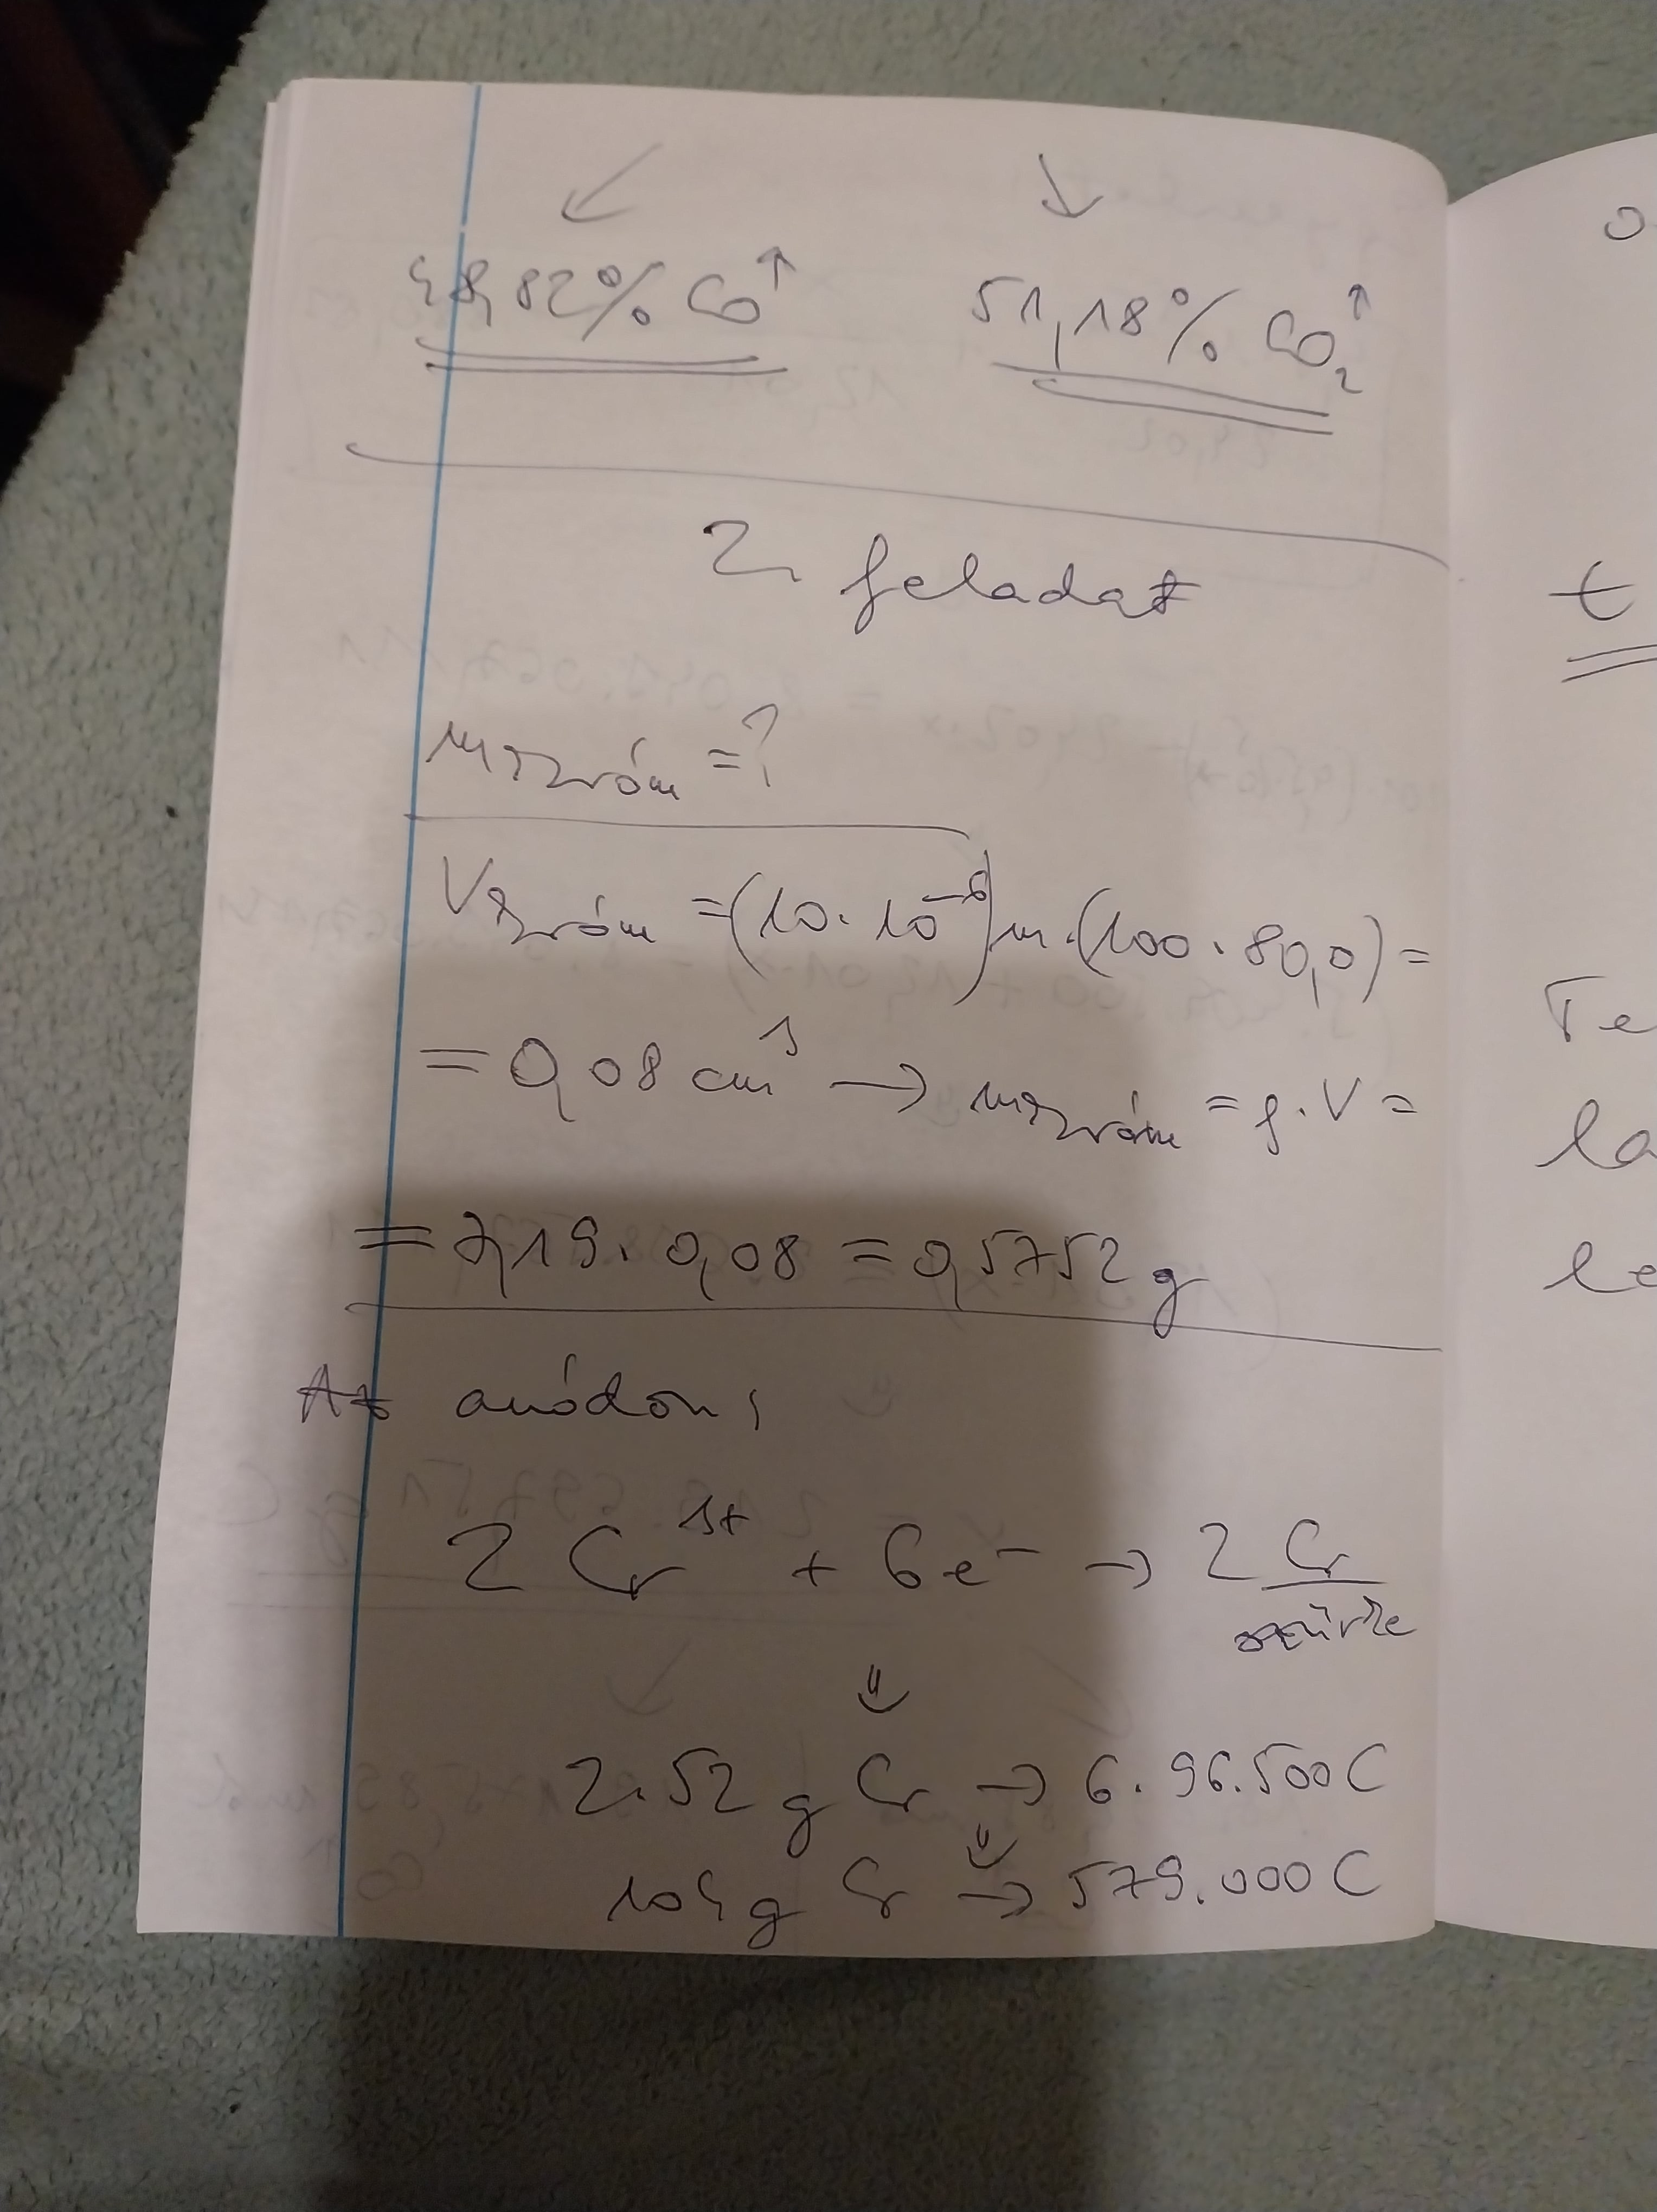 48,82% CO↑ 51,18% CO₂↑
2. feladat
m króm = ?
V króm = (10·10⁻⁶)m·(100·80,0) =
= 0,08 cm³ → m króm = ρ·V =
= 7,19·0,08 = 0,5752 g
Az anódon:
2 Cr³⁺ + 6e⁻ → 2 Cr
szürke
⇓
2·52 g Cr → 6·96.500 C
⇓
104 g Cr → 579.000 C
t
Te
la
le